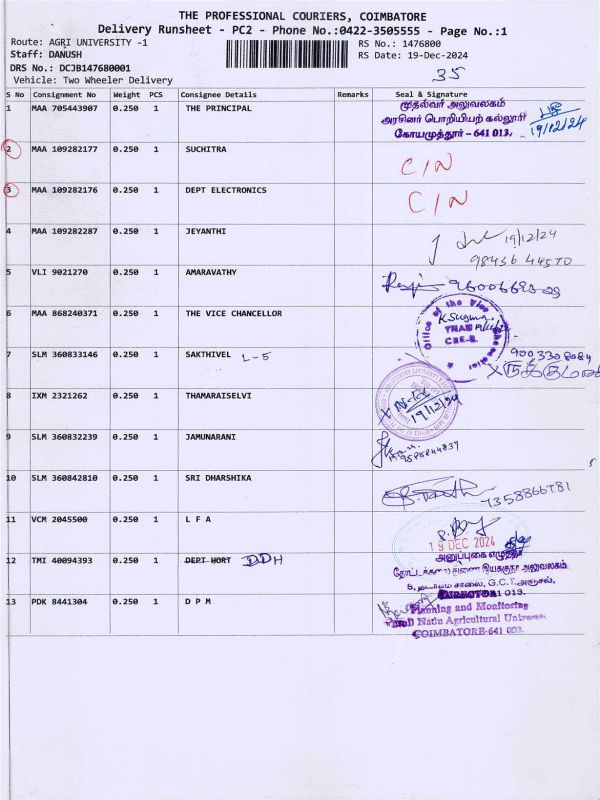 THE PROFESSIONAL COURIERS, COIMBATORE
Delivery Runsheet - PC2 - Phone No.:0422-3505555 - Page No.:1
Route: AGRI UNIVERSITY -1 RS No.: 1476800
Staff: DANUSH RS Date: 19-Dec-2024
DRS No.: DCJB147680001
Vehicle: Two Wheeler Delivery 35
S No Consignment No Weight PCS Consignee Details Remarks Seal & Signature
1 MAA 705443907 0.250 1 THE PRINCIPAL முதல்வர் அலுவலகம்
அரசினர் பொறியியற் கல்லூரி
கோயமுத்தூர் - 641 013. 19/12/24
2 MAA 109282177 0.250 1 SUCHITRA C/N
3 MAA 109282176 0.250 1 DEPT ELECTRONICS C/N
4 MAA 109282287 0.250 1 JEYANTHI 19/12/24
98436 44570
5 VLI 9021270 0.250 1 AMARAVATHY
6 MAA 868240371 0.250 1 THE VICE CHANCELLOR Office of the Vice Chancellor
K.Suganya
TNAU
CBE-3.
7 SLM 360833146 0.250 1 SAKTHIVEL L-5
8 IXM 2321262 0.250 1 THAMARAISELVI 19/12/24
9 SLM 360832239 0.250 1 JAMUNARANI
10 SLM 360842810 0.250 1 SRI DHARSHIKA 7358866781
11 VCM 2045500 0.250 1 L F A
19 DEC 2024
அனுப்புகை எழுத்தர்
12 TMI 40094393 0.250 1 DEPT HORT DDH
அலுவலகம்
G.C.T. அஞ்சல்,
13 PDK 8441304 0.250 1 D P M DIRECTOR 013.
Planning and Monitoring
Tamil Nadu Agricultural University
COIMBATORE-641 003.